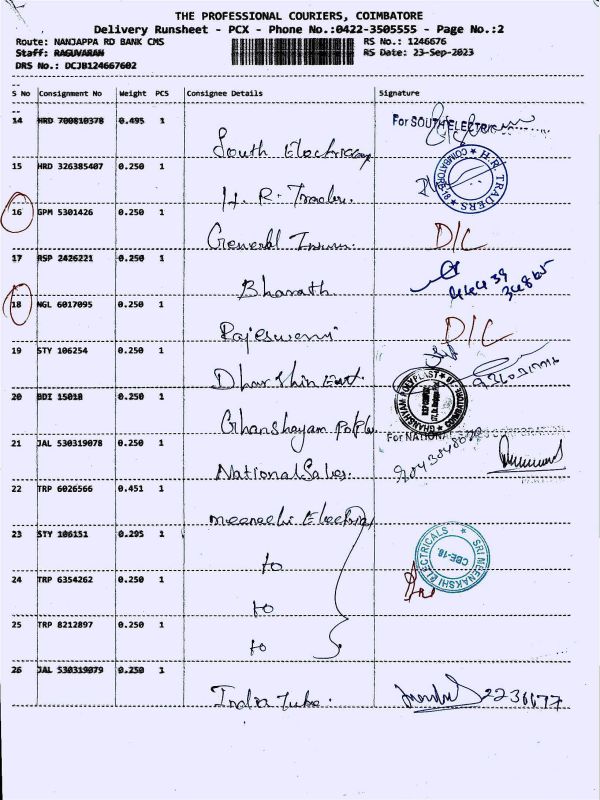 THE PROFESSIONAL COURIERS, COIMBATORE
Delivery Runsheet - PCX - Phone No.:0422-3505555 - Page No.:2
Route: NANJAPPA RD BANK CMS RS No.: 1246676
Staff: RAGUVARAN RS Date: 23-Sep-2023
DRS No.: DCJB124667602
S No Consignment No Weight PCS Consignee Details Signature
14 HRD 700810378 0.495 1 For SOUTH ELECTRIC
South Electricay
15 HRD 326385407 0.250 1 H.R. TRADERS COIMBATORE-18
H. R. Traders.
16 GPM 5301426 0.250 1
General Insurn. D/C
17 RSP 2426221 0.250 1
Bharath
18 NGL 6017095 0.250 1
Rajeswerri D/C
19 STY 106254 0.250 1
Dharshin Ent.
20 BDI 15018 0.250 1 GHANSHYAM POLYPLAST
Ghanshayam Polple
21 JAL 530319078 0.250 1 For NATIONAL SALES CORPORATION
National Sales. 8043048620
22 TRP 6026566 0.451 1
meenachi Electrical
23 STY 106151 0.295 1 SRI MEENAKSHI ELECTRICALS CBE-18
to
24 TRP 6354262 0.250 1
to
25 TRP 8212897 0.250 1
to
26 JAL 530319079 0.250 1
India Tube. 2236677